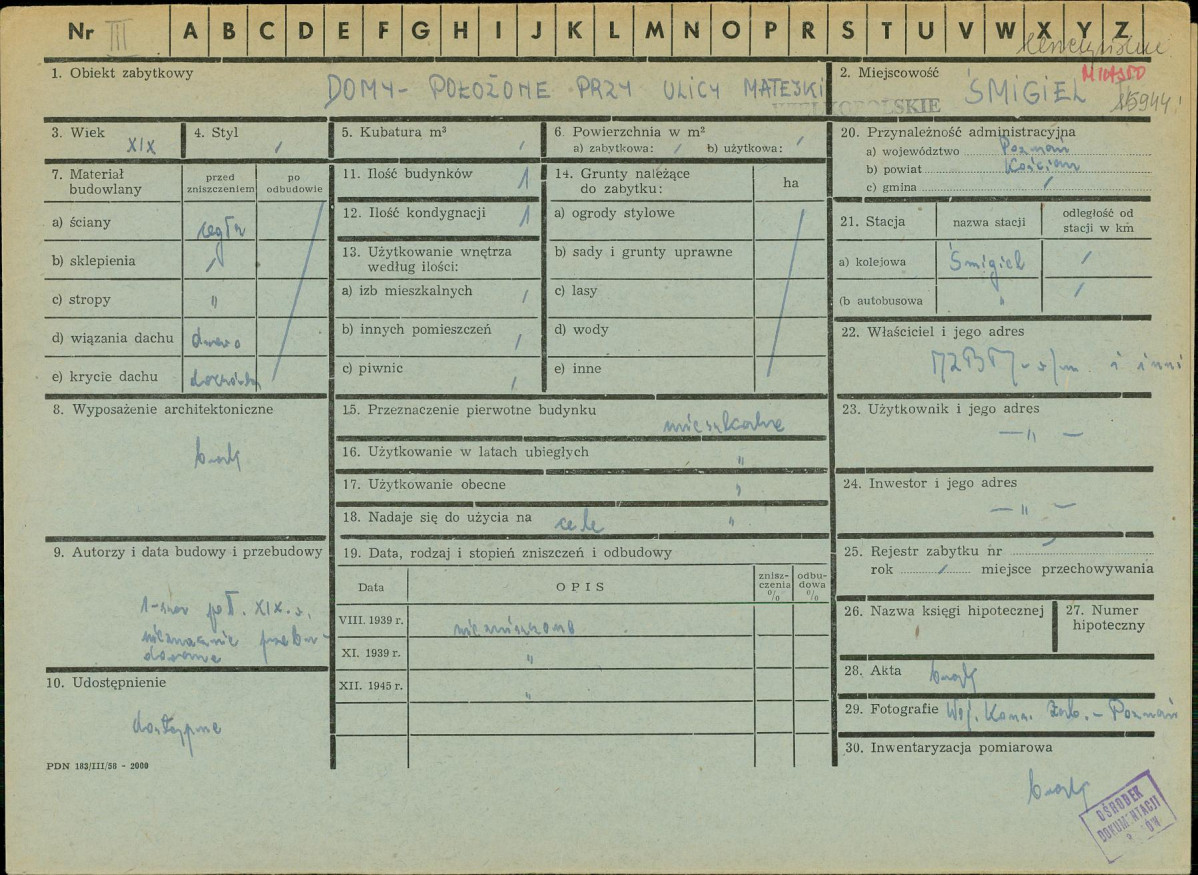 Nr III A B C D E F G H I J K L M N O P R S T U V W X Y Z
1. Obiekt zabytkowy
DOMY - POŁOŻONE PRZY ULICY MATEJKI
WIELKOPOLSKIE
2. Miejscowość
MIASTO
ŚMIGIEL
15944
3. Wiek
XIX
4. Styl
5. Kubatura m³
6. Powierzchnia w m²
a) zabytkowa: b) użytkowa:
20. Przynależność administracyjna
a) województwo Poznań
b) powiat Kościan
c) gmina
7. Materiał
budowlany
przed
zniszczeniem
po
odbudowie
a) ściany cegła
b) sklepienia
c) stropy "
d) wiązania dachu drewno
e) krycie dachu dachówka
11. Ilość budynków 1
12. Ilość kondygnacji 1
13. Użytkowanie wnętrza
według ilości:
a) izb mieszkalnych
b) innych pomieszczeń
c) piwnic
14. Grunty należące
do zabytku:
ha
a) ogrody stylowe
b) sady i grunty uprawne
c) lasy
d) wody
e) inne
21. Stacja
nazwa stacji
odległość od
stacji w km
a) kolejowa Śmigiel
(b autobusowa "
22. Właściciel i jego adres
i inni
8. Wyposażenie architektoniczne
brak
15. Przeznaczenie pierwotne budynku
mieszkalne
16. Użytkowanie w latach ubiegłych "
17. Użytkowanie obecne "
18. Nadaje się do użycia na cele "
23. Użytkownik i jego adres
— " —
24. Inwestor i jego adres
— " —
9. Autorzy i data budowy i przebudowy
1-sza poł. XIX w.
nieznacznie przebu-
dowane
19. Data, rodzaj i stopień zniszczeń i odbudowy
Data
OPIS
znisz-
czenia
%
odbu-
dowa
%
VIII. 1939 r. niezniszczone
XI. 1939 r. "
XII. 1945 r. "
25. Rejestr zabytku nr
rok miejsce przechowywania
26. Nazwa księgi hipotecznej
27. Numer
hipoteczny
10. Udostępnienie
dostępne
28. Akta brak
29. Fotografie Woj. Kons. Zab. - Poznań
30. Inwentaryzacja pomiarowa
brak
PDN 183/III/58 - 2000
OŚRODEK
DOKUMENTACJI